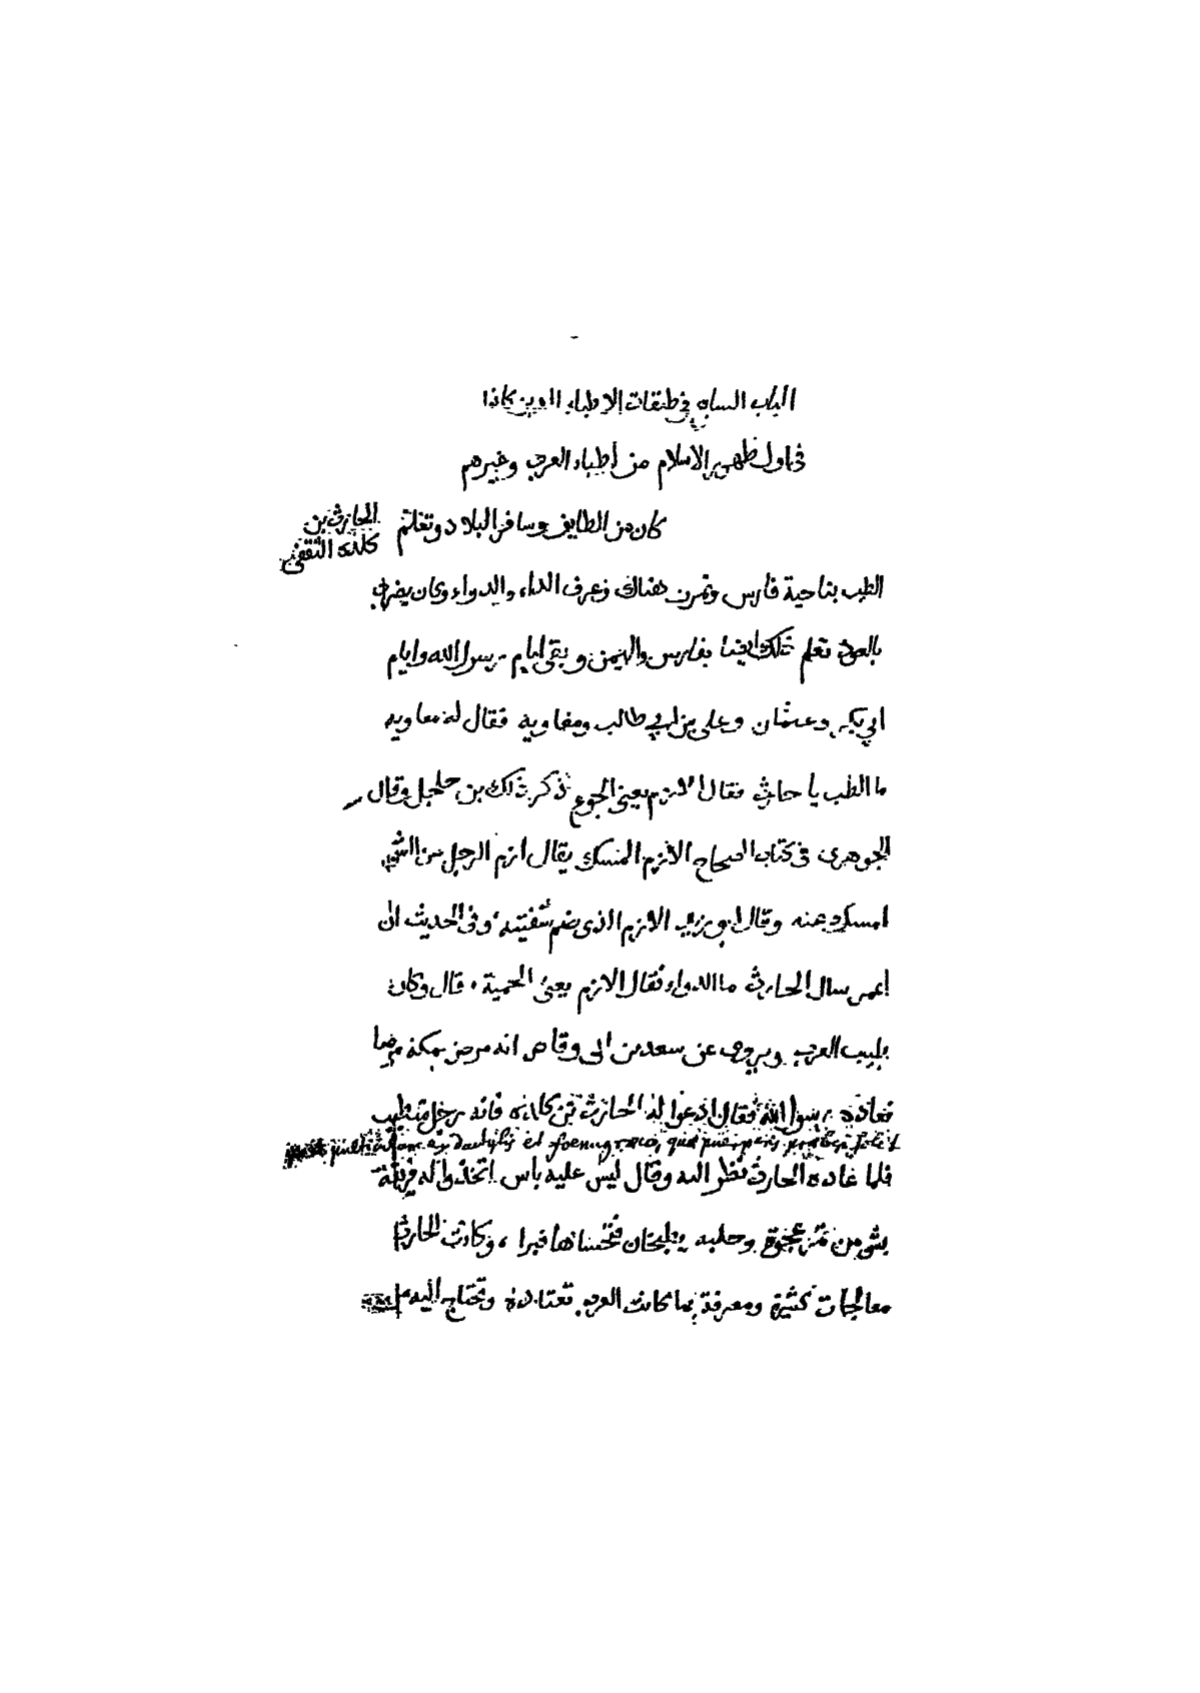 الباب السابع في طبقات الاطباء الذين كانوا
في اول ظهور الاسلام من أطباء العرب وغيرهم
الحارث بن
كلدة الثقفي
كان من الطايف وسافر البلاد وتعلم
الطب بناحية فارس وتمرن هناك وعرف الداء والدواء وكان يضرب
بالعود تعلم ذلك ايضا بفارس واليمن وبقى ايام رسول الله وايام
ابي بكر وعثمان وعلي بن ابي طالب ومعاوية فقال له معاويه
ما الطب يا حارث فقال الازم يعنى الجوع ذكر ذلك بن جلجل وقال
الجوهرى في كتاب الصحاح الازم المسك يقال ازم الرجل من الشي
امسك عنه وقال ابو زيد الازم الذى ضم شفتيه وفى الحديث ان
عمر سال الحارث ما الدواء فقال الازم يعنى الحمية، قال وكان
طبيب العرب ويروى عن سعد بن ابى وقاص انه مرض بمكة مرضا
فعاده رسول الله فقال ادعوا له الحارث بن كلدة فانه رجل متطبب
ex dactylis et foenugraeco, quae puerperis
فلما عاده الحارث نظر اليه وقال ليس عليه باس اتخذوا له فريقة
بشي من تمر عجوة وحلبه يطبخان فتحساها فبرا، وكانت الحارث
معالجات كثيرة ومعرفة بما كانت العرب تعتاده وتحتاج اليه